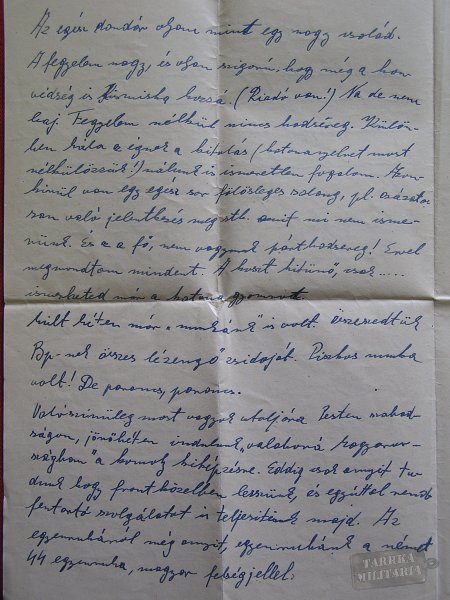 Az egész kondár olyan mint egy nagy család.
A fegyelem nagy, és olyan szigorú, hogy még a hon-
védség is kismiska hozzá (Riadó van!) Na de nem
baj. Fegyelem nélkül nincs hadsereg. Külön-
ben hála a égnek a kifulás (katonanyelvet most
nélkülözzük!) nálunk is ismeretlen fogalom. Azon-
kívül van egy egész sor fölösleges dolog, pl.
son való jelentkezés meg stb. amit mi nem isme-
rünk. És a a fő, nem vagyunk párthadsereg! Ezzel
megmondtam mindent. A koszt kitünő, csak .....
ismerheted már a katona gyomrát.
Mult héten már „munkánk" is volt. összeszedtük
Bp-nek összes lézengő zsidaját. Piszkos munka
volt! De parancs, parancs.
Valószinüleg most vagyok utoljára Pesten szabad-
ságon, jövőhéten indulunk „valahová Magyaror-
szágban" a komoly kiképzésre. Eddig csak annyit tu-
dunk hogy frontközelben leszünk, és egyúttal rend
fentartó szolgálatot is teljesítünk majd. Az
egyenruhánról még annyit, egyenruhánk a német
44 egyenruha, magyar felségjellel.
TARRKA
MILITARIA